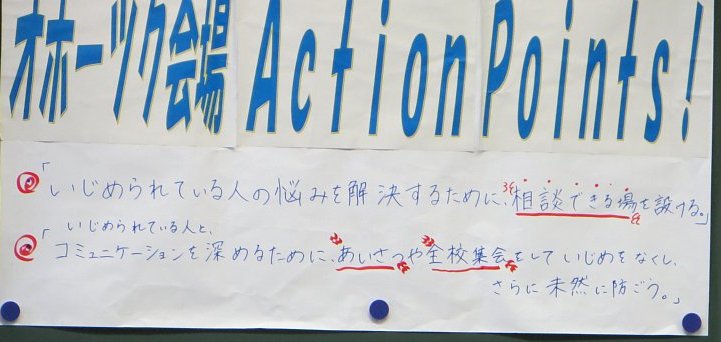 オホーツク会場 Action Points!
「いじめられている人の悩みを解決するために、相談できる場を設ける。」
いじめられている人と、
「コミュニケーションを深めるために、あいさつや全校集会をしていじめをなくし、
さらに未然に防ごう。」